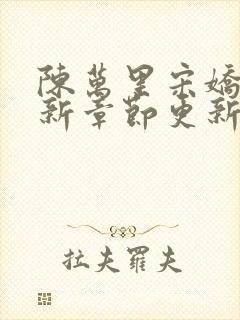 陳萬里宋嬌
新章節更新
拉夫羅夫